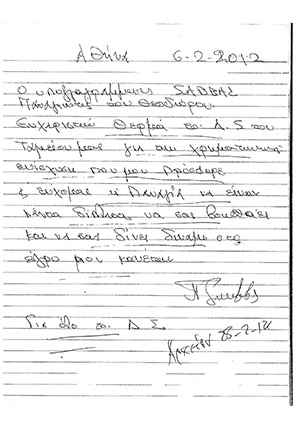 Αθήνα 6-2-2012
Ο υπογεγραμμένος ΣΑΒΒΑΣ
του Θεοδώρου.
Ευχαριστώ Θερμά το Δ.Σ του
Ταμείου μας για την χρηματική
ενίσχυση που μου πρόσφερε
ς εύχομαι η Παναγία να είναι
πάντα δίπλα να σας βοηθάει
και να σας δίνει δύναμη στο
έργο που κάνετε
Για όλο το Δ.Σ
Αρχείον 28-2-12